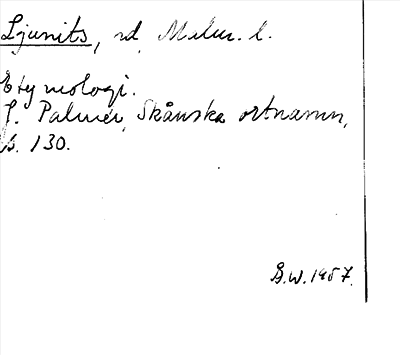 Ljunits, rd, Malm. l.
Etymologi.
J. Palmér, Skånska ortnamn,
s. 130.
B.W. 1957.